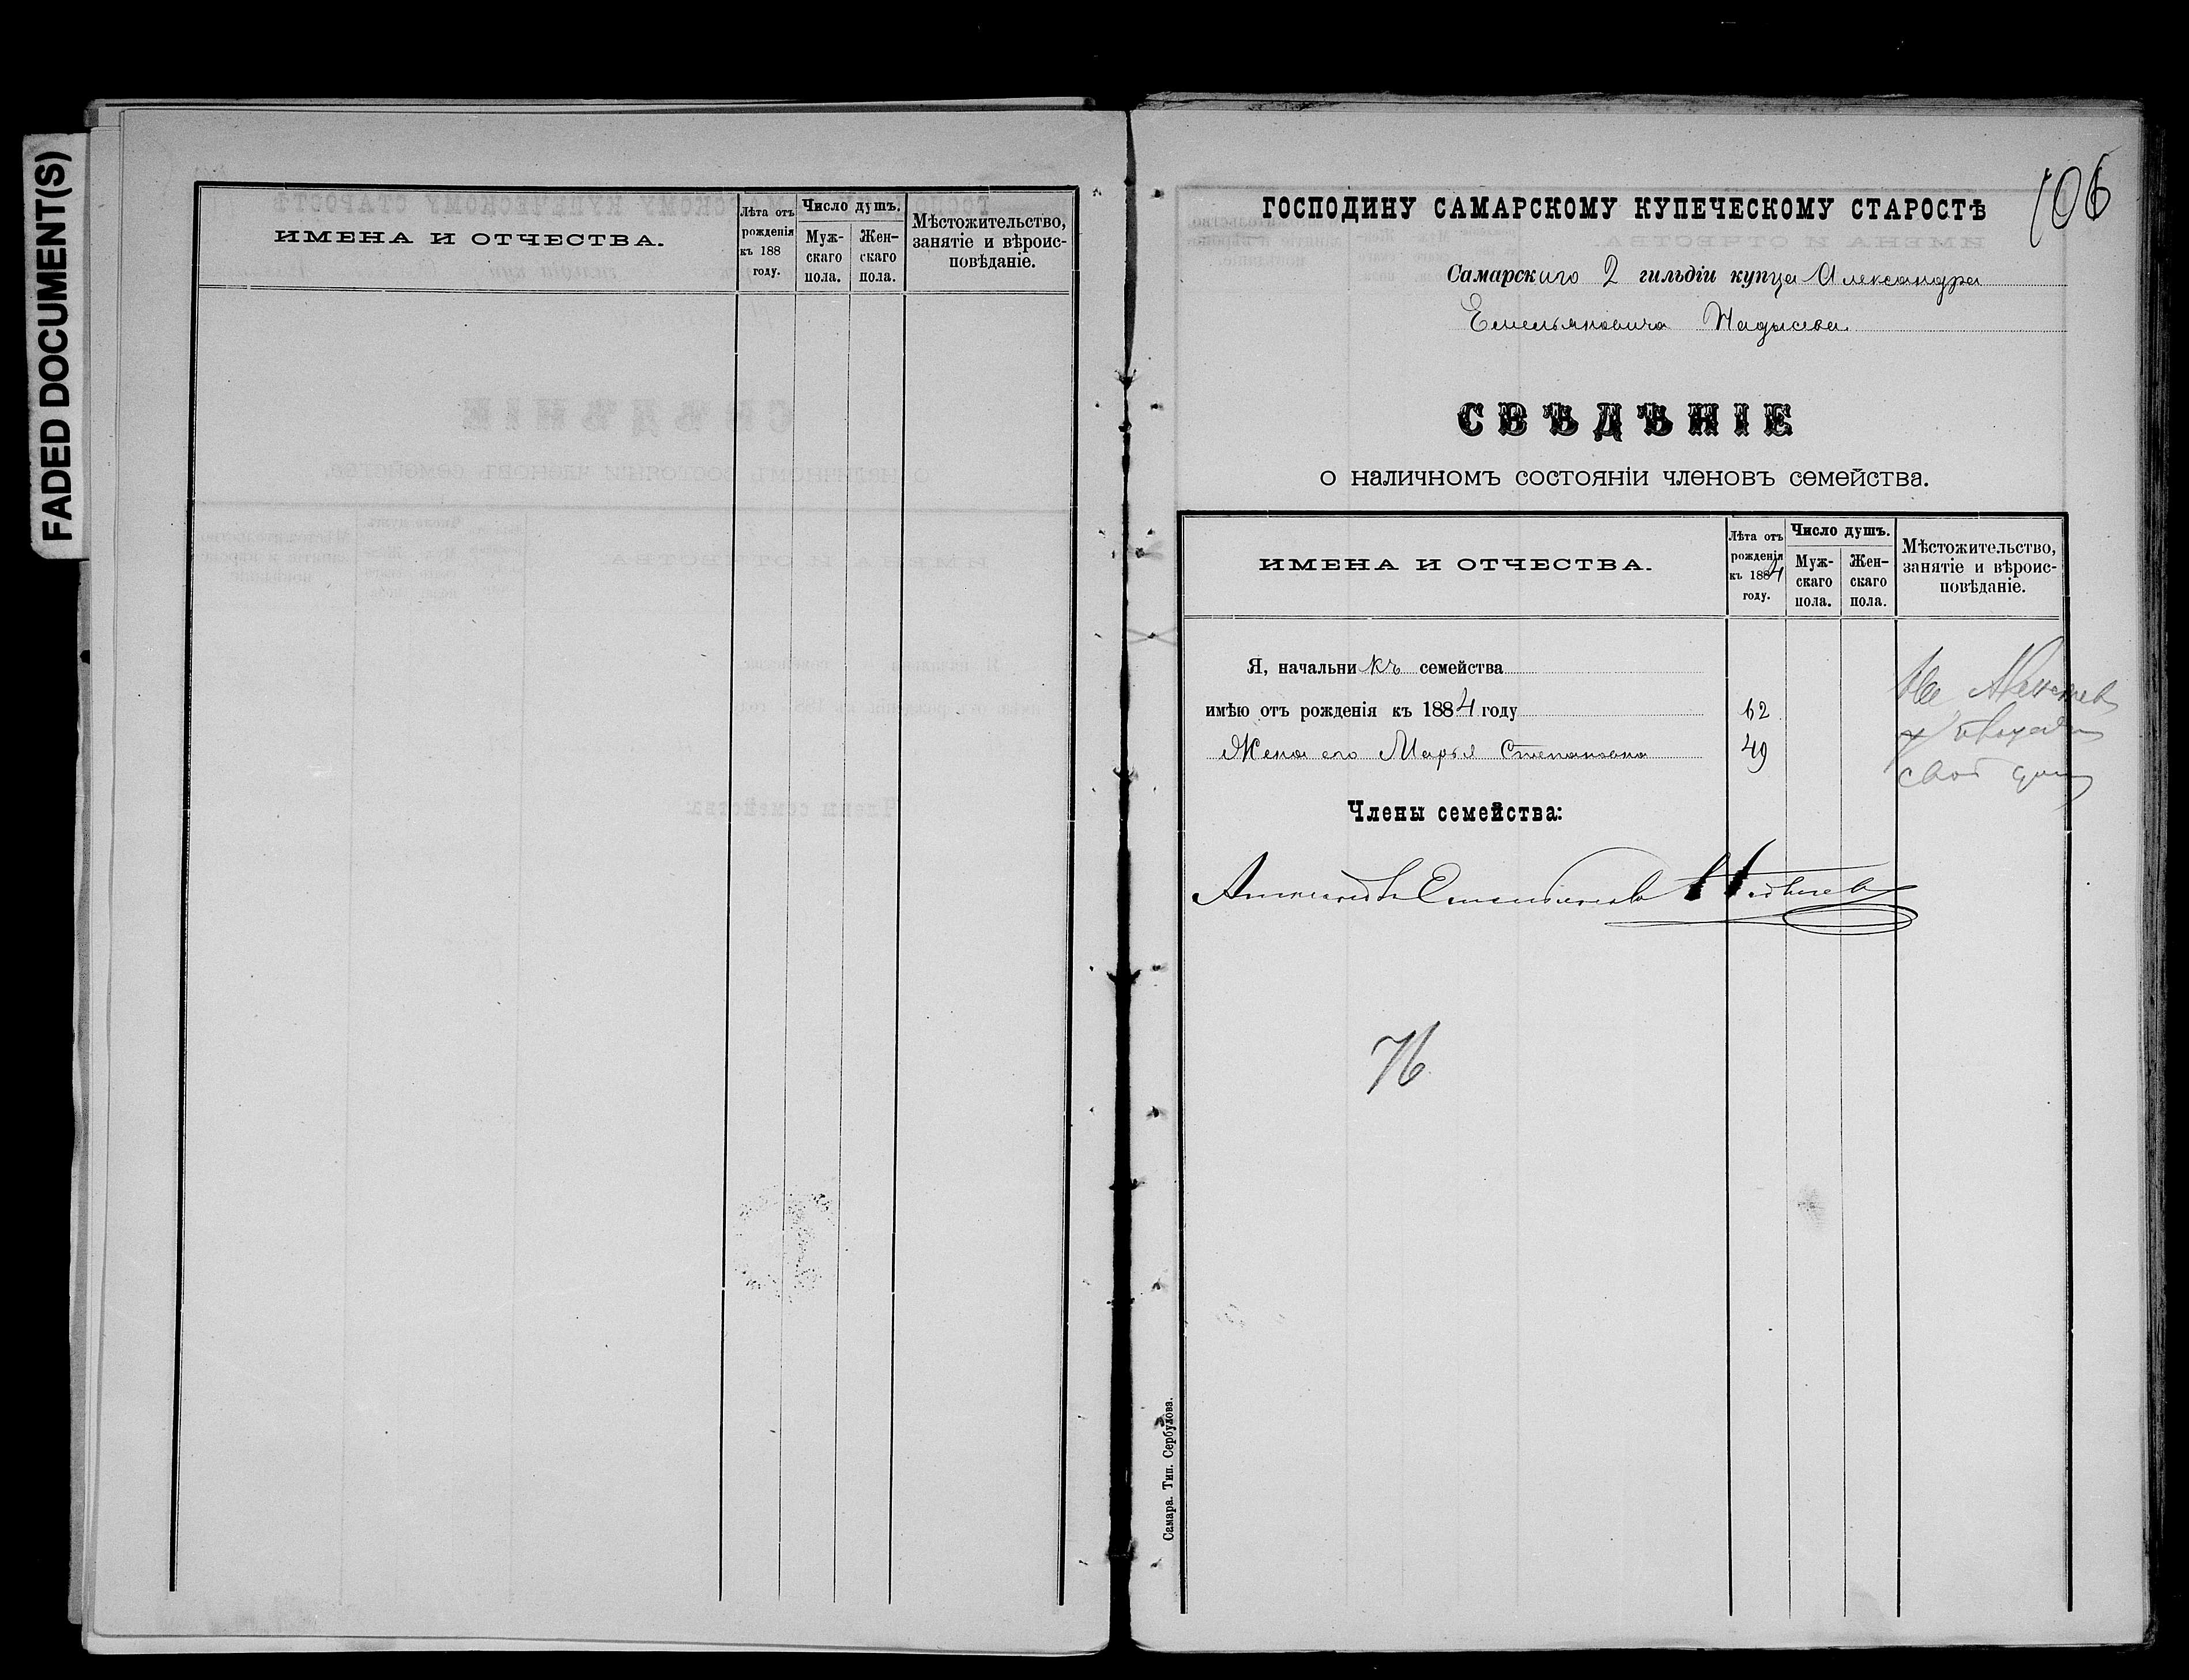 FADED DOCUMENT(S)
ИМЕНА И ОТЧЕСТВА.
Лѣта отъ рожденія къ 188 году.
Число душъ.
Мужскаго пола.
Женскаго пола.
Мѣстожительство, занятіе и вѣроисповѣданіе.
106
ГОСПОДИНУ САМАРСКОМУ КУПЕЧЕСКОМУ СТАРОСТѢ
Самарскаго 2 гильдіи купца Александра
Емельяновича
СВѢДѢНІЕ
о наличномъ состояніи членовъ семейства.
ИМЕНА И ОТЧЕСТВА.
Лѣта отъ рожденія къ 1884 году.
Число душъ.
Мужскаго пола.
Женскаго пола.
Мѣстожительство, занятіе и вѣроисповѣданіе.
Я, начальникъ семейства
имѣю отъ рожденія къ 1884 году 62
Жена его Марья Степановна 49
свой домъ
Члены семейства:
76
Самара. Тип. Сербулова.